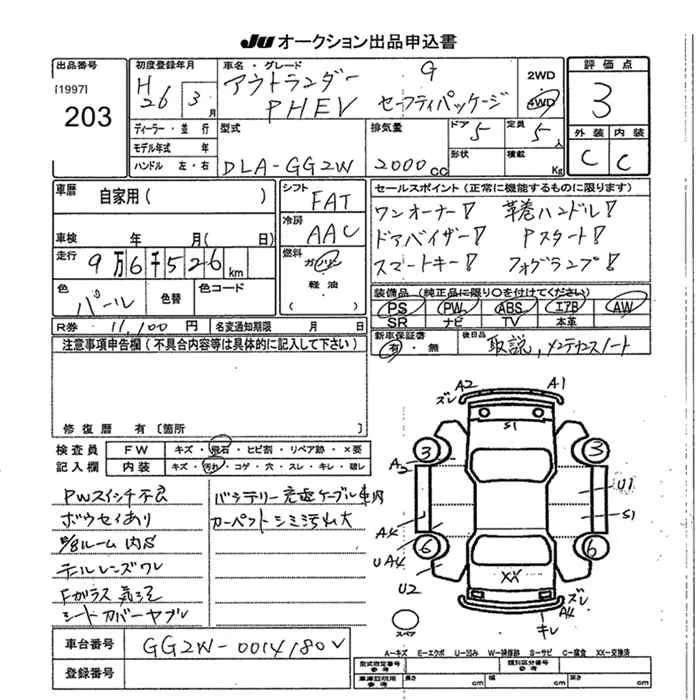 JU オークション出品申込書
出品番号
[1997]
203
初度登録年月
H26 3月
車名・グレード
アウトランダー G
PHEV セーフティパッケージ
2WD
4WD
評価点
3
外装 内装
C C
ディーラー・並行
モデル年式 年
ハンドル 左・右
型式
DLA-GG2W
排気量
2000cc
ドア 5
形状
定員 5人
積載 Kg
車歴 自家用( )
車検 年 月( 日)
走行 9万6千526km
色 パール 色替
色コード
シフト FAT
冷房 AAC
燃料 ガソリン
・
軽油
( )
セールスポイント(正常に機能するものに限ります)
ワンオーナー! 革巻ハンドル!
ドアバイザー! Pスタート!
スマートキー! フォグランプ!
装備品(純正品に限り○を付けてください)
PS PW ABS エアB AW
SR ナビ TV 本革
R券 11,100円 名変通知期限 月 日
新車保証書 有・無
後日品 取説、メンテナンスノート
注意事項申告欄(不具合内容等は具体的に記入して下さい)
修復歴 有〔箇所 〕
検査員記入欄
FW キズ・飛石・ヒビ割・リペア跡・×要
内装 キズ・汚れ・コゲ・穴・スレ・キレ・破レ
PWスイッチ不良
ボウセイあり
ルーム内S
テールレンズワレ
Fガラス
シートカバーヤブレ
バッテリー充電ケーブル車内
カーペットシミ汚れ大
A2 A1
ズレ
S1
3 3
A2
U1
S1
A4
UA4
6 6
U2
XX
ズレ
A4
キレ
スペア
A-キズ E-エクボ U-凹み W-補修跡 S-サビ C-腐食 XX-交換済
車台番号 GG2W-0014180
登録番号
型式指定番号 参考
類別区分番号 参考
車庫証明用 参考 長さ cm 幅 cm 高さ cm